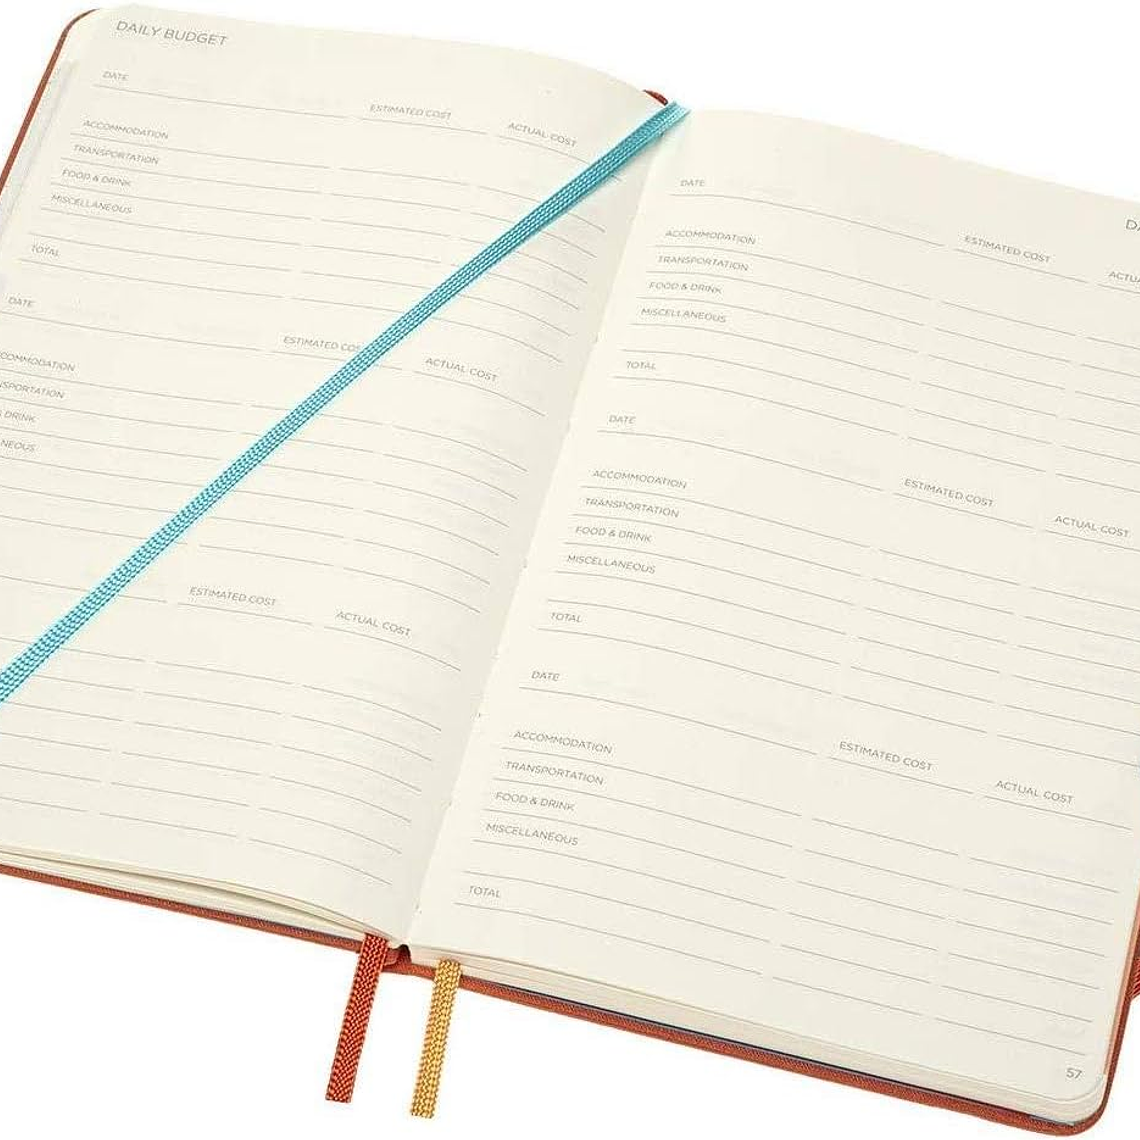 DAILY BUDGET
DATE
ESTIMATED COST
ACTUAL COST
ACCOMMODATION
TRANSPORTATION
FOOD & DRINK
MISCELLANEOUS
TOTAL
DATE
ESTIMATED COS
ACTUAL COST
COMMODATION
NSPORTATION
DRINK
NEOUS
ESTIMATED COST
ACTUAL COST
DA
DATE
ESTIMATED COST
ACTUA
ACCOMMODATION
TRANSPORTATION
FOOD & DRINK
MISCELLANEOUS
TOTAL
DATE
ESTIMATED COST
ACTUAL COST
ACCOMMODATION
TRANSPORTATION
FOOD & DRINK
MISCELLANEOUS
TOTAL
DATE
ESTIMATED COST
ACTUAL COST
ACCOMMODATION
TRANSPORTATION
FOOD & DRINK
MISCELLANEOUS
TOTAL
57